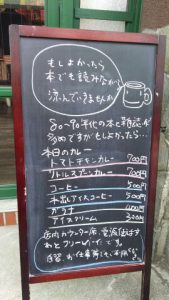 もしよかったら
本でも読みながら
涼んでいきませんか
80〜90年代の本と雑誌が
ですがもしよかったら…
本日のカレー
トマトチキンカレー 900円
リトルスプーンカレー 700円
コーヒー 500円
水出しアイスコーヒー 500円
ガラナ 400円
アイスクリーム 300円
店内カウンター席、電源
わとフリーWi-Fiです。
自習、お仕事等にも